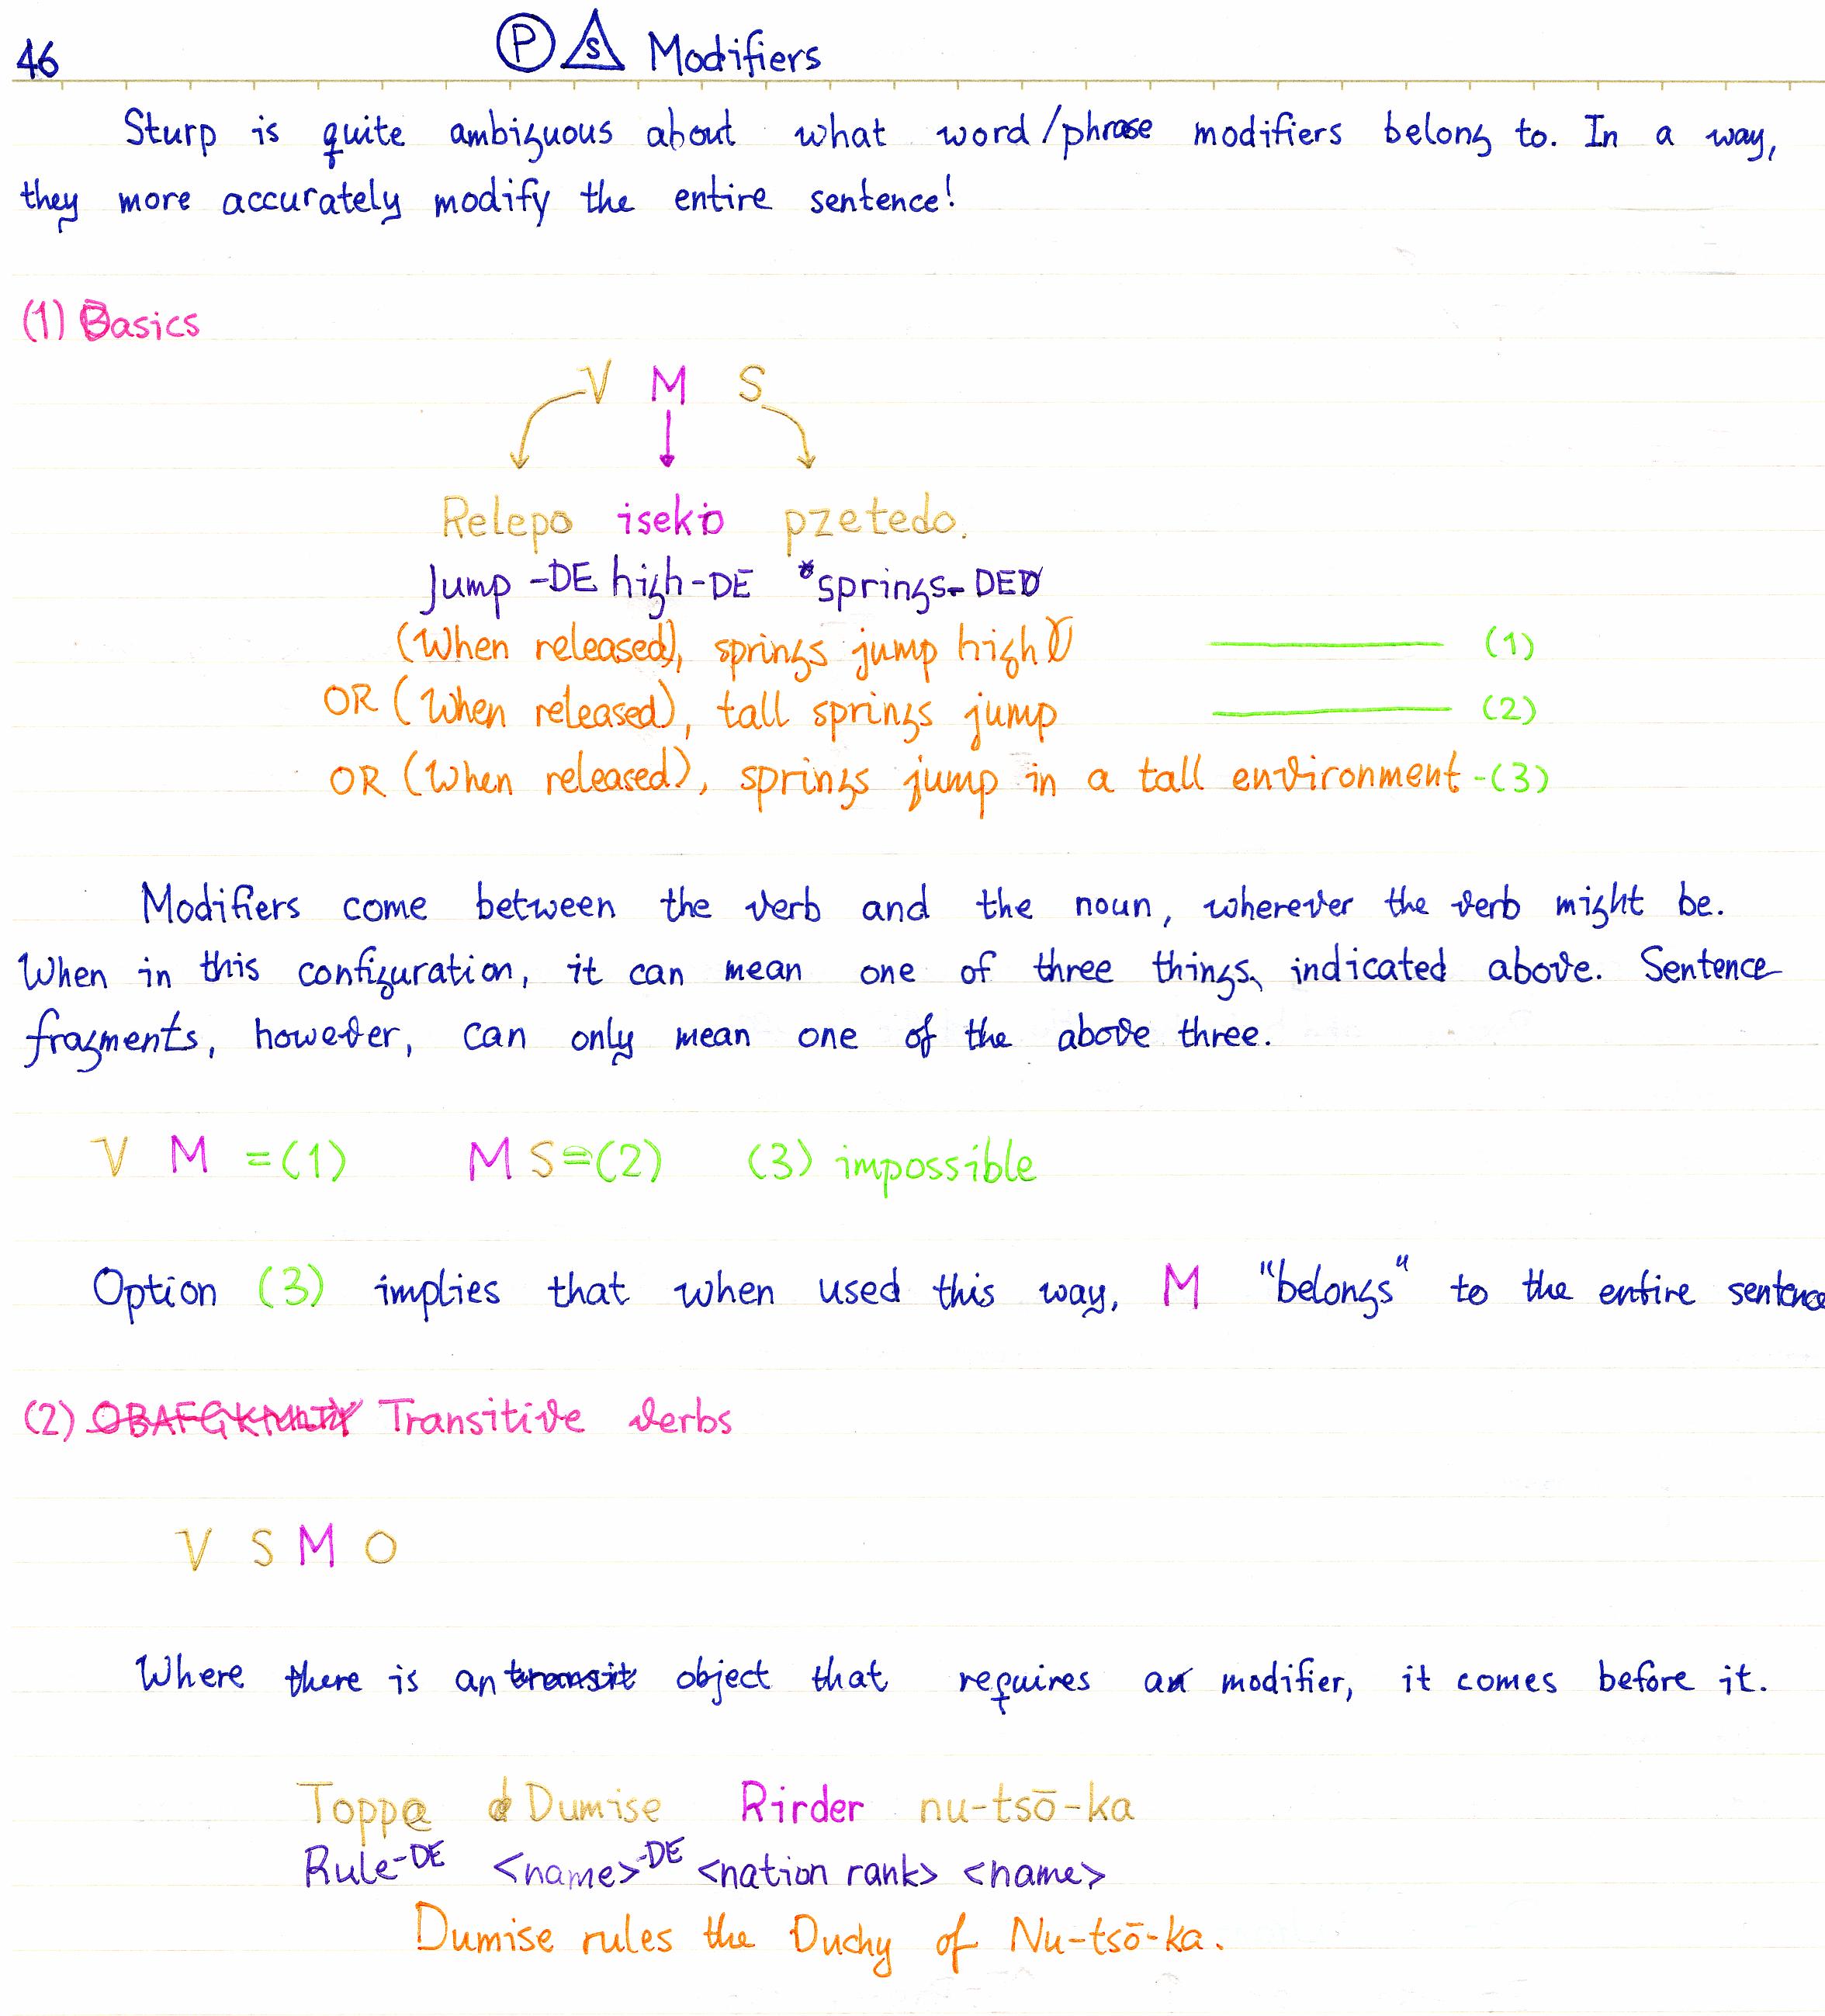 46
P S Modifiers
Sturp is quite ambiguous about what word/phrase modifiers belong to. In a way,
they more accurately modify the entire sentence!
(1) Basics
V M S
Relepo iseko pzetedo.
Jump-DE high-DE *springs-DED
(When released), springs jump high
OR (When released), tall springs jump
OR (When released), springs jump in a tall environment
(1)
(2)
-(3)
Modifiers come between the verb and the noun, wherever the verb might be.
When in this configuration, it can mean one of three things, indicated above. Sentence
fragments, however, can only mean one of the above three.
V M =(1) M S=(2) (3) impossible
Option (3) implies that when used this way, M "belongs" to the entire sentence
(2) OBAFGKM Transitive verbs
V S M O
Where there is an transit object that requires a modifier, it comes before it.
Toppa Dumise Rirder nu-tsō-ka
Rule-DE <name>-DE <nation rank> <name>
Dumise rules the Duchy of Nu-tsō-ka.